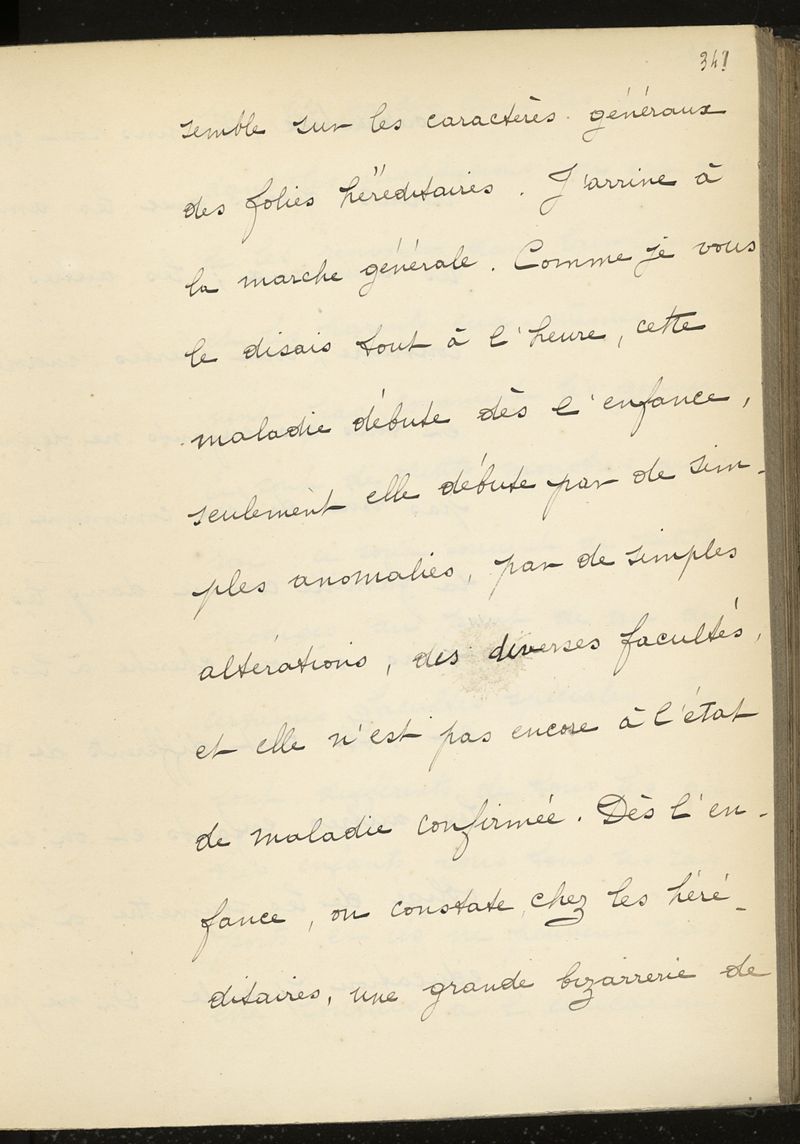 341
semble sur les caractères généraux
des folies héréditaires. J'arrive à
la marche générale. Comme je vous
le disais tout à l'heure, cette
maladie débute dès l'enfance,
seulement elle débute par de sim-
ples anomalies, par de simples
altérations, des diverses facultés,
et elle n'est pas encore à l'état
de maladie confirmée. Dès l'en-
fance, on constate, chez les héré-
ditaires, une grande bizarrerie de